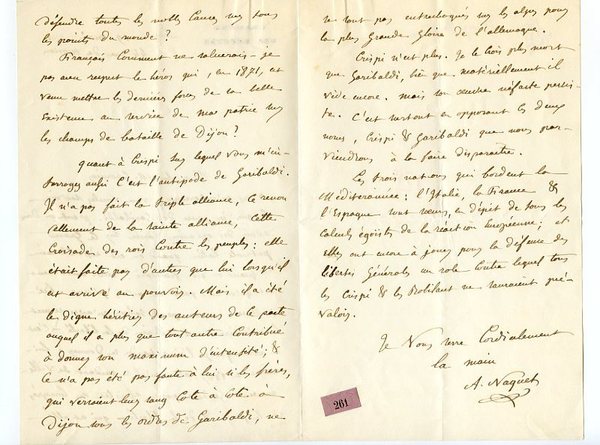 défendre toutes les nobles causes sur tous
les points du monde ?
Français comment ne saluerais-je
pas avec respect le héros qui, en 1871, est
venu mettre les dernières forces de sa belle
existence au service de ma patrie sur
les champs de bataille de Dijon ?
quant à Crispi sur lequel vous m'in-
terrogez aussi c'est l'antipode de Garibaldi.
Il n'a pas fait la triple alliance, ce renou
vellement de la sainte alliance, cette
Croisade des rois contre les peuples : elle
était faite par d'autres que lui lorsqu'il
est arrivé au pouvoir. Mais il a été
le digne héritier des auteurs de le pacte
auquel il a plus que tout autre contribué
à donner son maximum d'intensité ; &
ce n'a pas été pas faute à lui si les frères,
qui versaient leur sang côte à côte à
Dijon sous les ordres de Garibaldi, ne
se sont pas entrechoqués sur les alpes pour
la plus grande gloire de l'allemagne.
Crispi n'est plus. Je le crois plus mort
que Garibaldi, bien que matériellement il
vive encore. mais son œuvre néfaste persis-
te. C'est surtout en opposant les deux
noms, Crispi & Garibaldi que nous par-
viendrons à la faire disparaître.
Les trois nations qui bordent la
Méditerranée : l'Italie, la France &
l'Espagne sont sœurs, en dépit de tous les
calculs égoistes de la réaction européenne ; et
elles ont encore à jouer pour la défense des
libertés générales un role contre lequel tous
les Crispi & les Robilant ne sauraient pré-
valoir.
Je vous serre cordialement
la main
A. Naquet
261